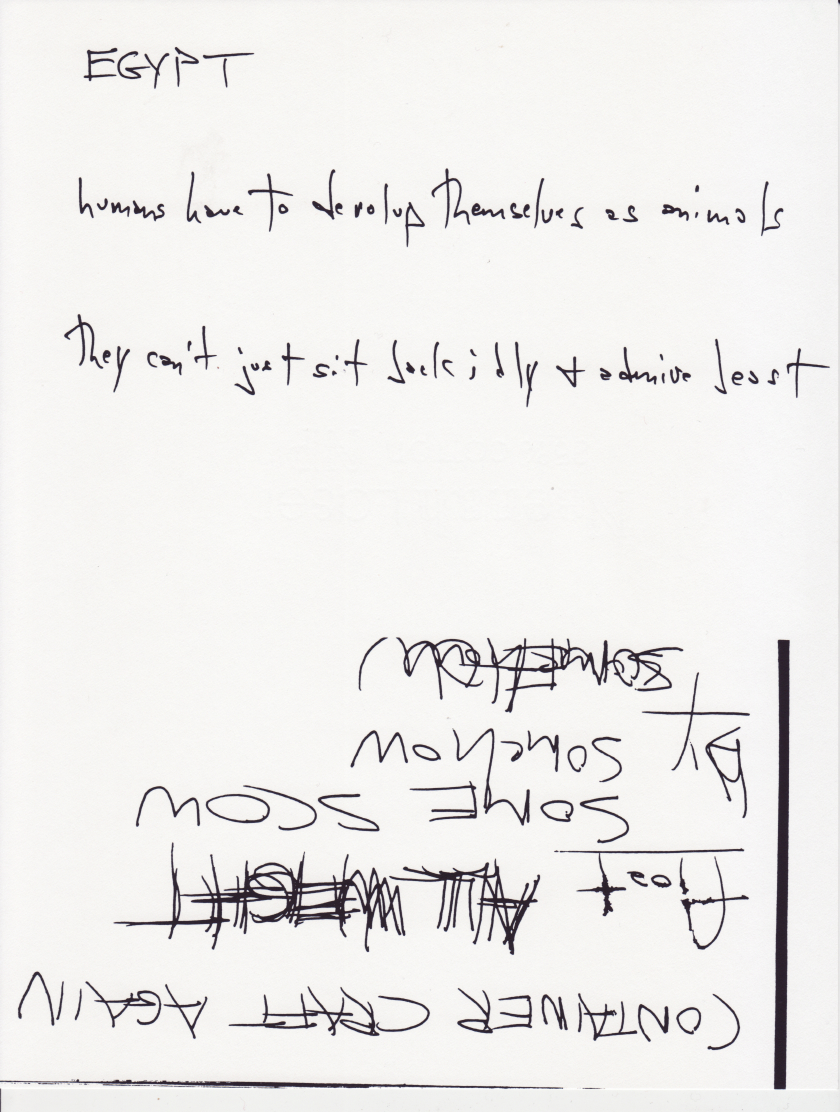 EGYPT
humans have to develup themselves as animals
They can't just sit back idly + admire beast
CONTAINER CRAFT AGAIN
Post ALL WEST
SOME SCOW
By somehow
SOMEHOW